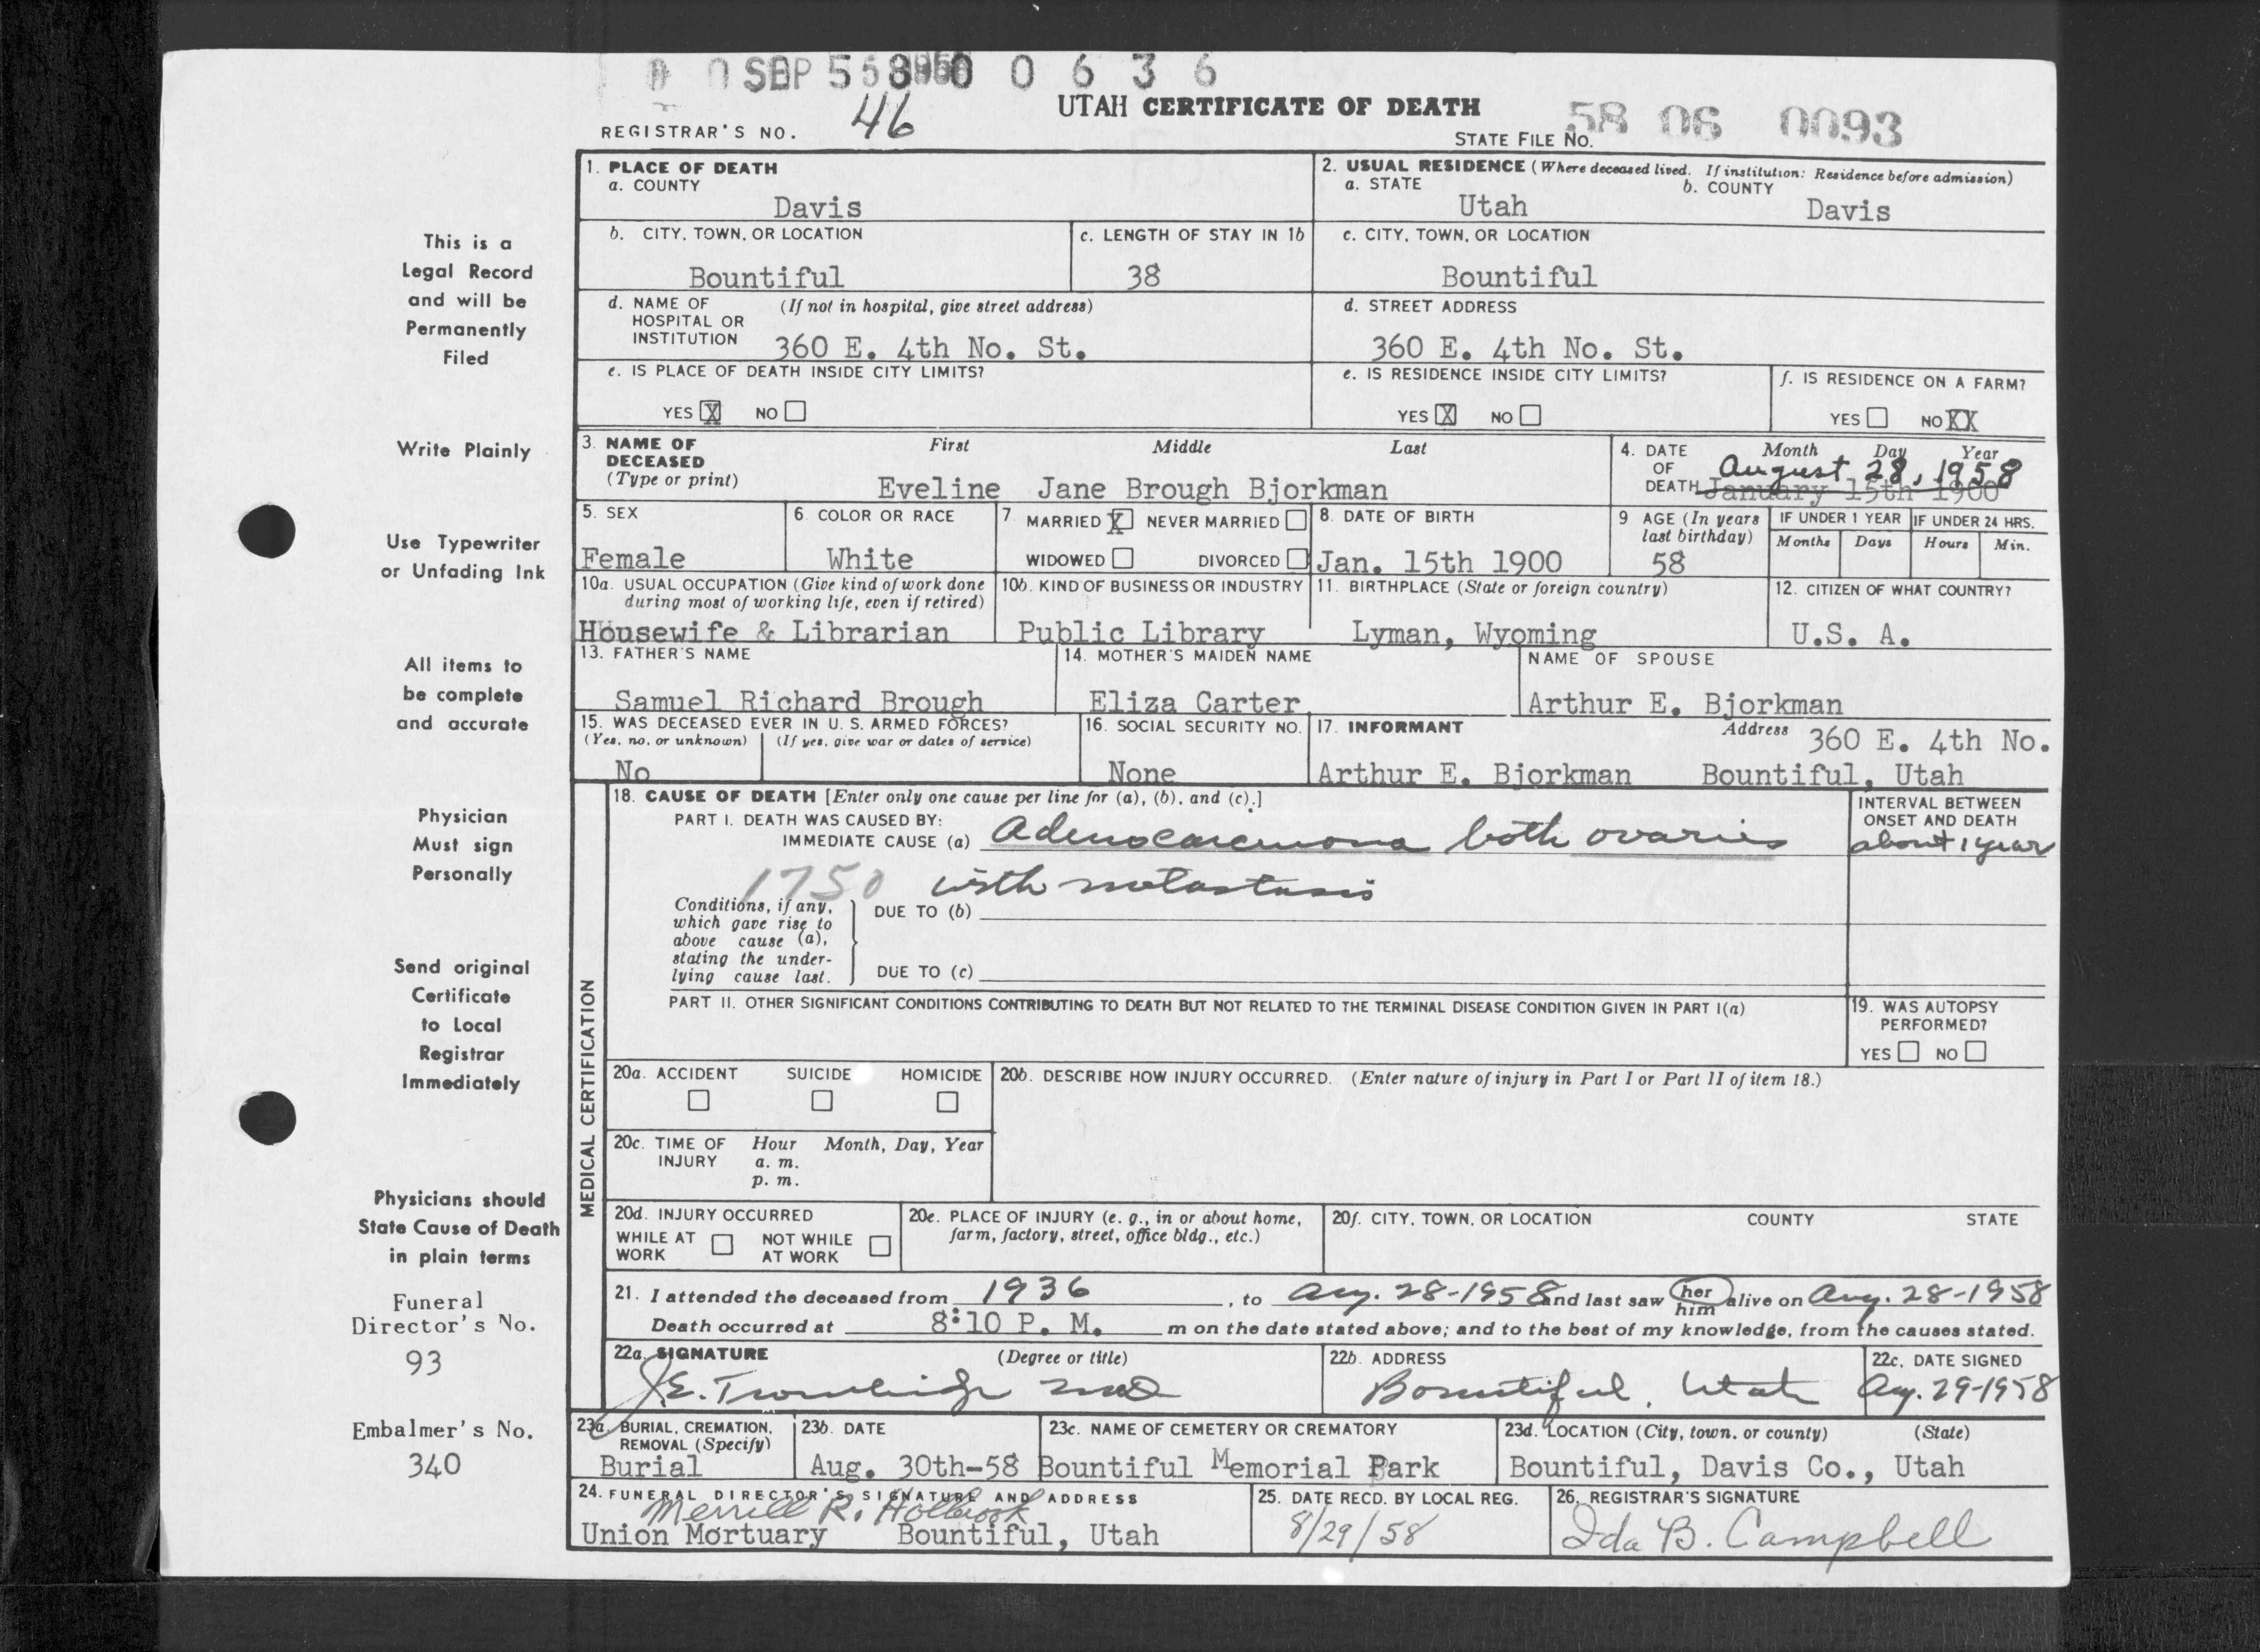 SEP 5 1958 0 0 6 3 6
UTAH CERTIFICATE OF DEATH
REGISTRAR'S NO. 46
STATE FILE NO. 58 06 0093
This is a
Legal Record
and will be
Permanently
Filed
Write Plainly
Use Typewriter
or Unfading Ink
All items to
be complete
and accurate
Physician
Must sign
Personally
Send original
Certificate
to Local
Registrar
Immediately
Physicians should
State Cause of Death
in plain terms
Funeral
Director's No.
93
Embalmer's No.
340
1. PLACE OF DEATH
a. COUNTY
Davis
2. USUAL RESIDENCE (Where deceased lived. If institution: Residence before admission)
a. STATE b. COUNTY
Utah Davis
b. CITY, TOWN, OR LOCATION
Bountiful
c. LENGTH OF STAY IN 1b
38
c. CITY, TOWN, OR LOCATION
Bountiful
d. NAME OF (If not in hospital, give street address)
HOSPITAL OR
INSTITUTION 360 E. 4th No. St.
d. STREET ADDRESS
360 E. 4th No. St.
e. IS PLACE OF DEATH INSIDE CITY LIMITS?
YES X NO
e. IS RESIDENCE INSIDE CITY LIMITS?
YES X NO
f. IS RESIDENCE ON A FARM?
YES NO XX
3. NAME OF First Middle Last
DECEASED
(Type or print) Eveline Jane Brough Bjorkman
4. DATE Month Day Year
OF August 28, 1958
DEATH January 15th 1900
5. SEX
Female
6. COLOR OR RACE
White
7. MARRIED X NEVER MARRIED
WIDOWED DIVORCED
8. DATE OF BIRTH
Jan. 15th 1900
9 AGE (In years
last birthday)
58
IF UNDER 1 YEAR IF UNDER 24 HRS.
Months Days Hours Min.
10a. USUAL OCCUPATION (Give kind of work done
during most of working life, even if retired)
Housewife & Librarian
10b. KIND OF BUSINESS OR INDUSTRY
Public Library
11. BIRTHPLACE (State or foreign country)
Lyman, Wyoming
12. CITIZEN OF WHAT COUNTRY?
U.S. A.
13. FATHER'S NAME
Samuel Richard Brough
14. MOTHER'S MAIDEN NAME
Eliza Carter
NAME OF SPOUSE
Arthur E. Bjorkman
15. WAS DECEASED EVER IN U. S. ARMED FORCES?
(Yes, no, or unknown) (If yes, give war or dates of service)
No
16. SOCIAL SECURITY NO.
None
17. INFORMANT Address 360 E. 4th No.
Arthur E. Bjorkman Bountiful, Utah
MEDICAL CERTIFICATION
18. CAUSE OF DEATH [Enter only one cause per line for (a), (b), and (c).]
PART I. DEATH WAS CAUSED BY:
IMMEDIATE CAUSE (a) Adenocarcinoma both ovaries
1750 with metastasis
INTERVAL BETWEEN
ONSET AND DEATH
about 1 year
Conditions, if any,
which gave rise to
above cause (a),
stating the under-
lying cause last.
DUE TO (b)
DUE TO (c)
PART II. OTHER SIGNIFICANT CONDITIONS CONTRIBUTING TO DEATH BUT NOT RELATED TO THE TERMINAL DISEASE CONDITION GIVEN IN PART I(a)
19. WAS AUTOPSY
PERFORMED?
YES NO
20a. ACCIDENT SUICIDE HOMICIDE
20b. DESCRIBE HOW INJURY OCCURRED. (Enter nature of injury in Part I or Part II of item 18.)
20c. TIME OF Hour Month, Day, Year
INJURY a. m.
p. m.
20d. INJURY OCCURRED
WHILE AT NOT WHILE
WORK AT WORK
20e. PLACE OF INJURY (e. g., in or about home,
farm, factory, street, office bldg., etc.)
20f. CITY, TOWN, OR LOCATION COUNTY STATE
21. I attended the deceased from 1936, to Aug. 28-1958 and last saw her him alive on Aug. 28-1958
Death occurred at 8:10 P. M. m on the date stated above; and to the best of my knowledge, from the causes stated.
22a. SIGNATURE (Degree or title)
J.E. Trowbridge MD
22b. ADDRESS
Bountiful, Utah
22c. DATE SIGNED
Aug. 29-1958
23a. BURIAL, CREMATION,
REMOVAL (Specify)
Burial
23b. DATE
Aug. 30th-58
23c. NAME OF CEMETERY OR CREMATORY
Bountiful Memorial Park
23d. LOCATION (City, town, or county) (State)
Bountiful, Davis Co., Utah
24. FUNERAL DIRECTOR'S SIGNATURE AND ADDRESS
Merrill R. Holbrook
Union Mortuary Bountiful, Utah
25. DATE RECD. BY LOCAL REG.
8/29/58
26. REGISTRAR'S SIGNATURE
Ida B. Campbell